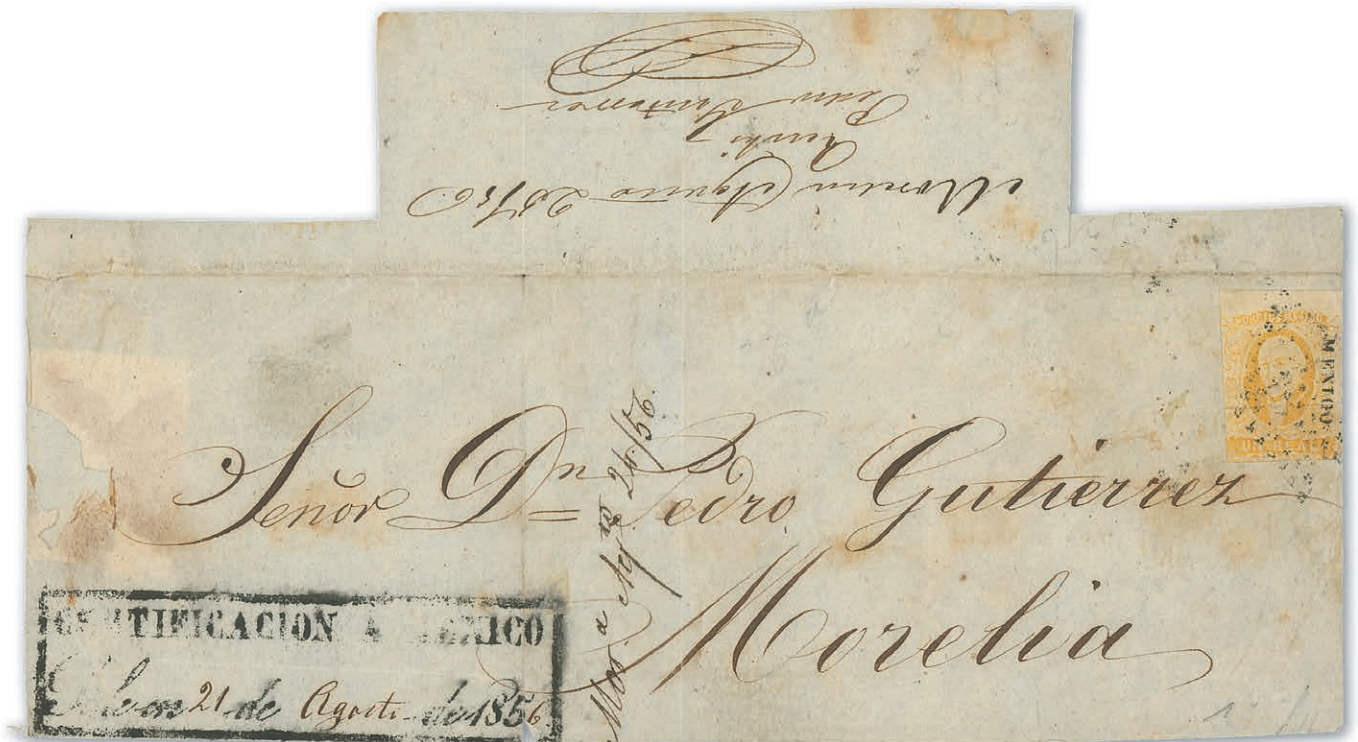 Morelia Agosto 25/56
Recibi
Pedro Gutierrez
MEXICO
UN REAL
Señor Dn Pedro Gutierrez
Morelia
Mora Agto 26/56.
TIFICACION MEXICO
21 de Agosto de 1856